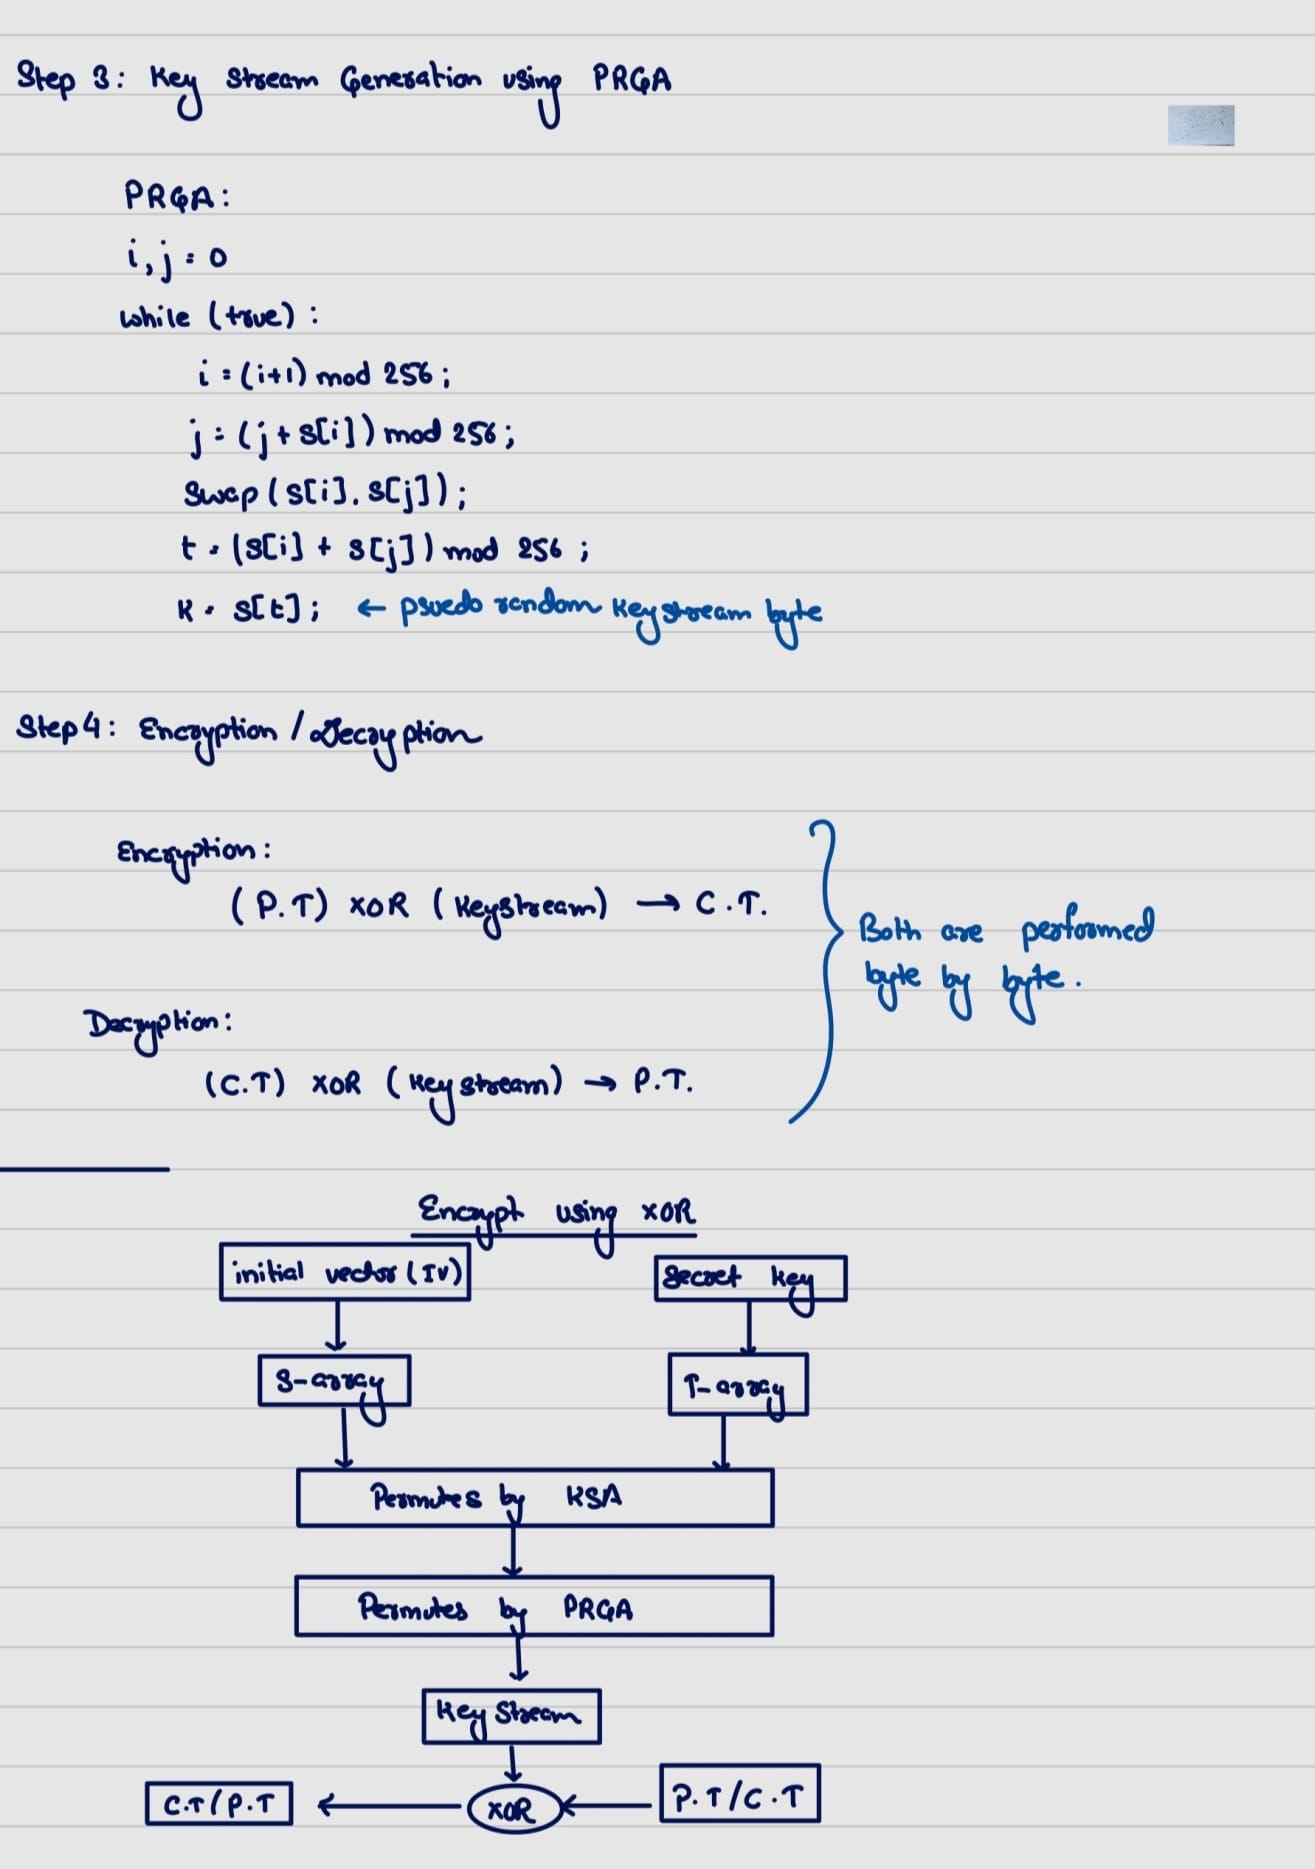 Step 3: Key Stream Generation using PRGA
PRGA:
i, j = 0
while (true) :
i = (i+1) mod 256 ;
j = (j + S[i]) mod 256 ;
Swap (S[i], S[j]) ;
t = (S[i] + S[j]) mod 256 ;
K = S[t] ; ← psuedo random keystream byte
Step 4: Encryption / Decryption
Encryption :
(P.T) XOR (Keystream) → C.T.
Both are performed
byte by byte.
Decryption :
(C.T) XOR (Keystream) → P.T.
Encrypt using XOR
initial vector (IV)
Secret key
S-array
T-array
Permutes by KSA
Permutes by PRGA
Key Stream
C.T/P.T
XOR
P.T/C.T